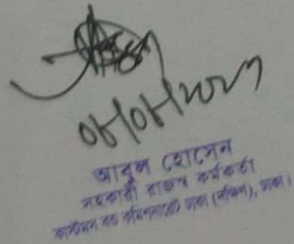 ০৮/০৮/২০২৭
আবুল হোসেন
সহকারী রাজস্ব কর্মকর্তা
কাস্টমস বন্ড কমিশনারেট ঢাকা (দক্ষিণ), ঢাকা।